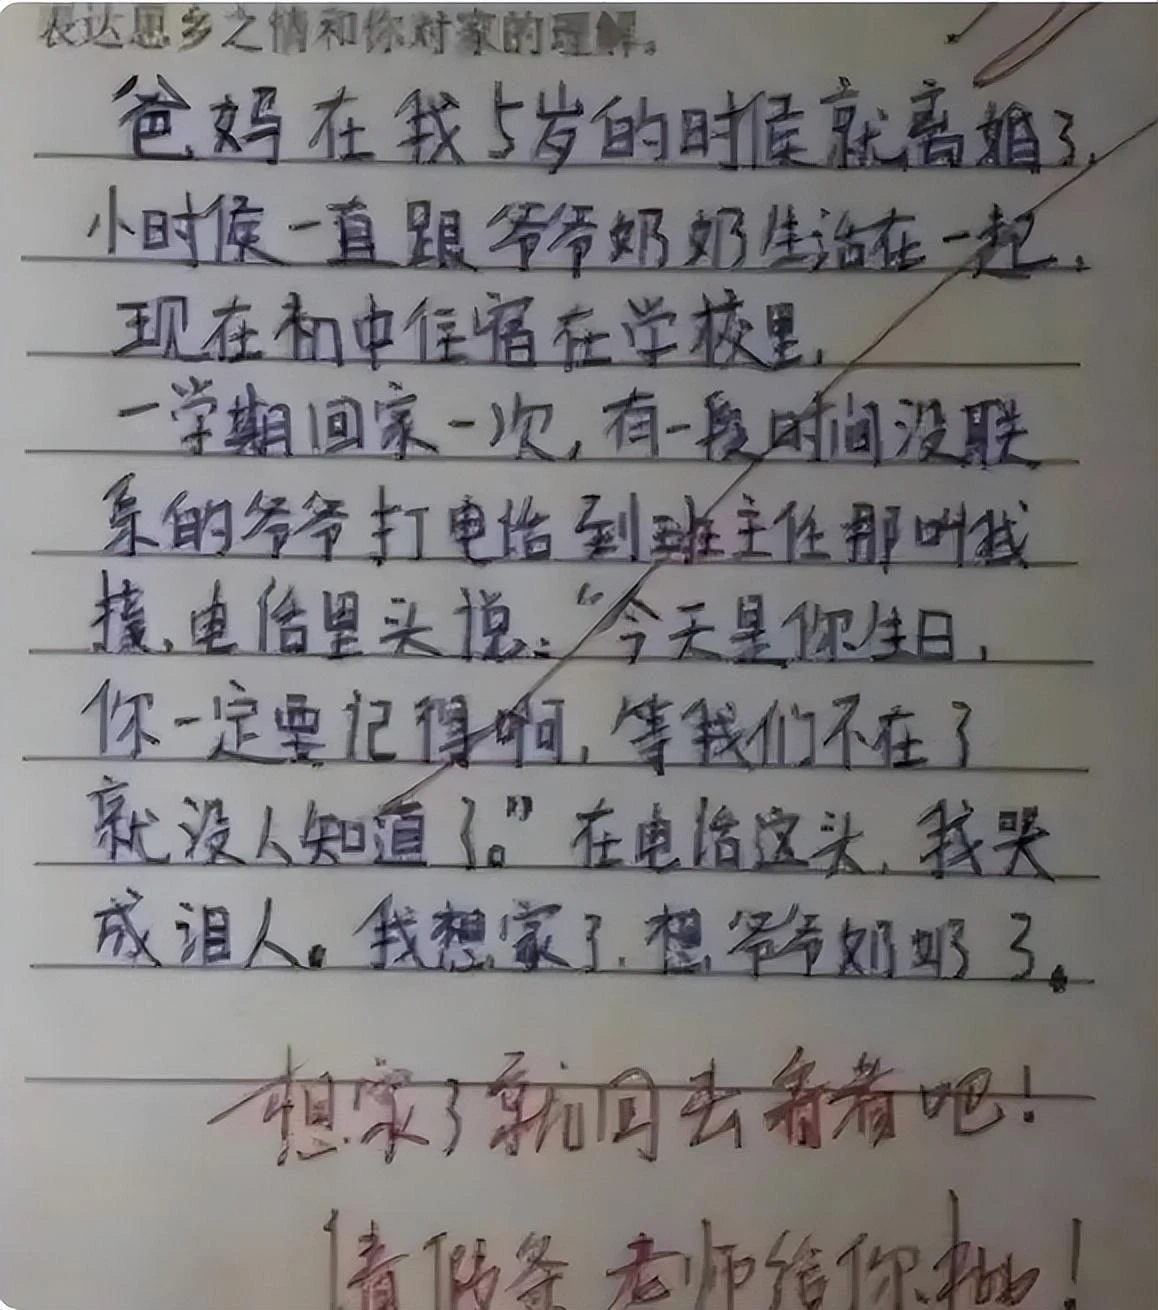 表达思乡之情和你对家的理解。
爸妈在我5岁的时候就离婚了,
小时候一直跟爷爷奶奶生活在一起,
现在初中住宿在学校里,
一学期回家一次,有一段时间没联
系的爷爷打电话到班主任那叫我
接,电话里头说:“今天是你生日,
你一定要记得啊,等我们不在了
就没人知道了。”在电话这头,我哭
成泪人。我想家了,想爷爷奶奶了。
想家了就回去看看吧!
请假条老师给你批!